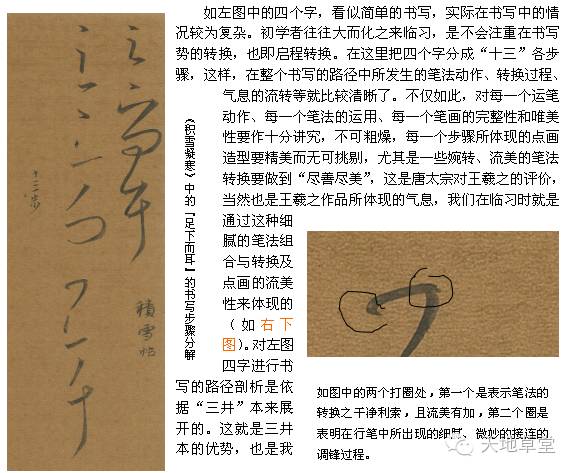 如左图中的四个字，看似简单的书写，实际在书写中的情
况较为复杂。初学者往往大而化之来临习，是不会注重在书写
势的转换，也即启程转换。在这里把四个字分成“十三”各步
骤，这样，在整个书写的路径中所发生的笔法动作、转换过程、
气息的流转等就比较清晰了。不仅如此，对每一个运笔
动作、每一个笔法的运用、每一个笔画的完整性和唯美
性要作十分讲究，不可粗燥，每一个步骤所体现的点画
造型要精美而无可挑剔，尤其是一些婉转、流美的笔法
转换要做到“尽善尽美”，这是唐太宗对王羲之的评价，
当然也是王羲之作品所体现的气息，我们在临习时就是
通过这种细
腻的笔法组
合与转换及
点画的流美
性来体现的
（如右下
图）。对左图
四字进行书
写的路径剖析是依
据“三井”本来展
开的。这就是三井
本的优势，也是我
《积雪凝寒》中的『足下而耳』的书写步骤分解
十三步
積雪帖
如图中的两个打圈处，第一个是表示笔法的
转换之干净利索，且流美有加，第二个圈是
表明在行笔中所出现的细腻、微妙的接连的
调锋过程。
天地草堂